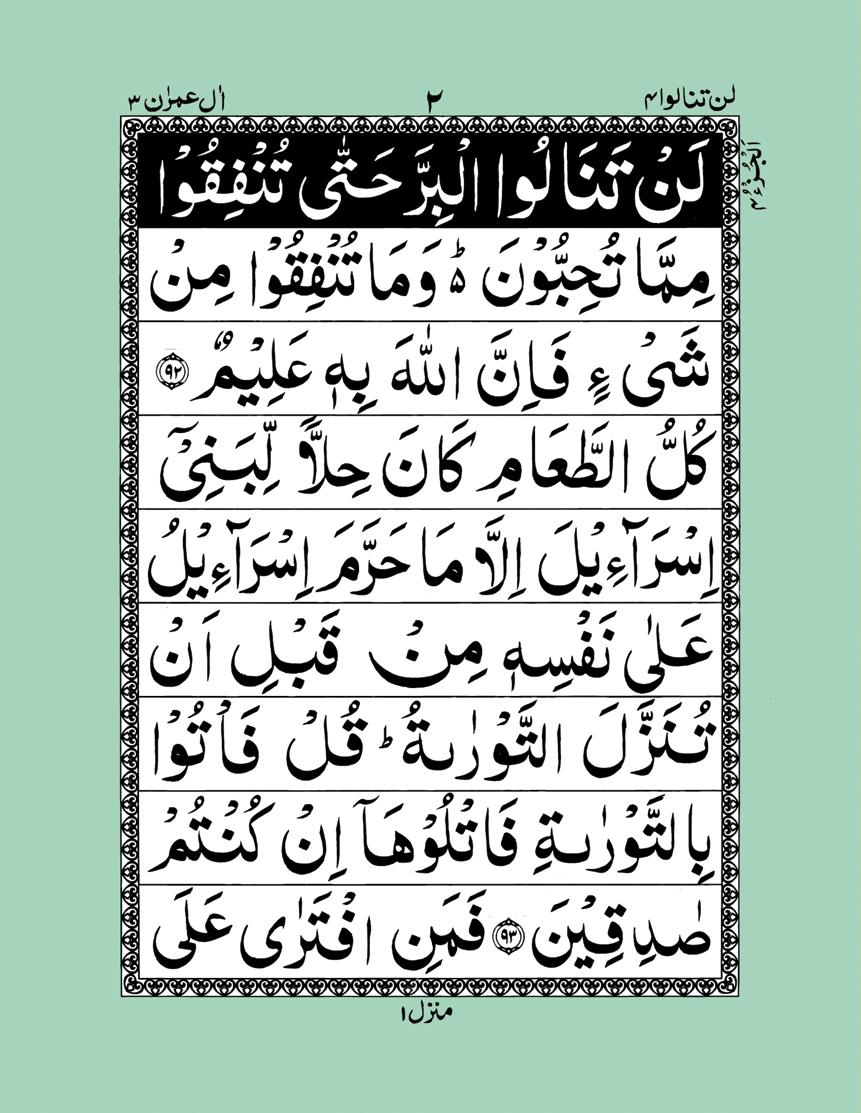 لن تنالوا ۴
۲
اٰل عمرٰن ۳
اَلْجُزْءُ ۴
لَنْ تَنَالُوا الْبِرَّ حَتّٰى تُنْفِقُوْا
مِمَّا تُحِبُّوْنَ ۵ؕ وَمَا تُنْفِقُوْا مِنْ
شَىْءٍ فَاِنَّ اللّٰهَ بِهٖ عَلِيْمٌ ﴿۹۲﴾
كُلُّ الطَّعَامِ كَانَ حِلًّا لِّبَنِىْۤ
اِسْرَآءِيْلَ اِلَّا مَا حَرَّمَ اِسْرَآءِيْلُ
عَلٰى نَفْسِهٖ مِنْ قَبْلِ اَنْ
تُنَزَّلَ التَّوْرٰىةُ ؕ قُلْ فَاْتُوْا
بِالتَّوْرٰىةِ فَاتْلُوْهَاۤ اِنْ كُنْتُمْ
صٰدِقِيْنَ ﴿۹۳﴾ فَمَنِ افْتَرٰى عَلَى
منزل ۱